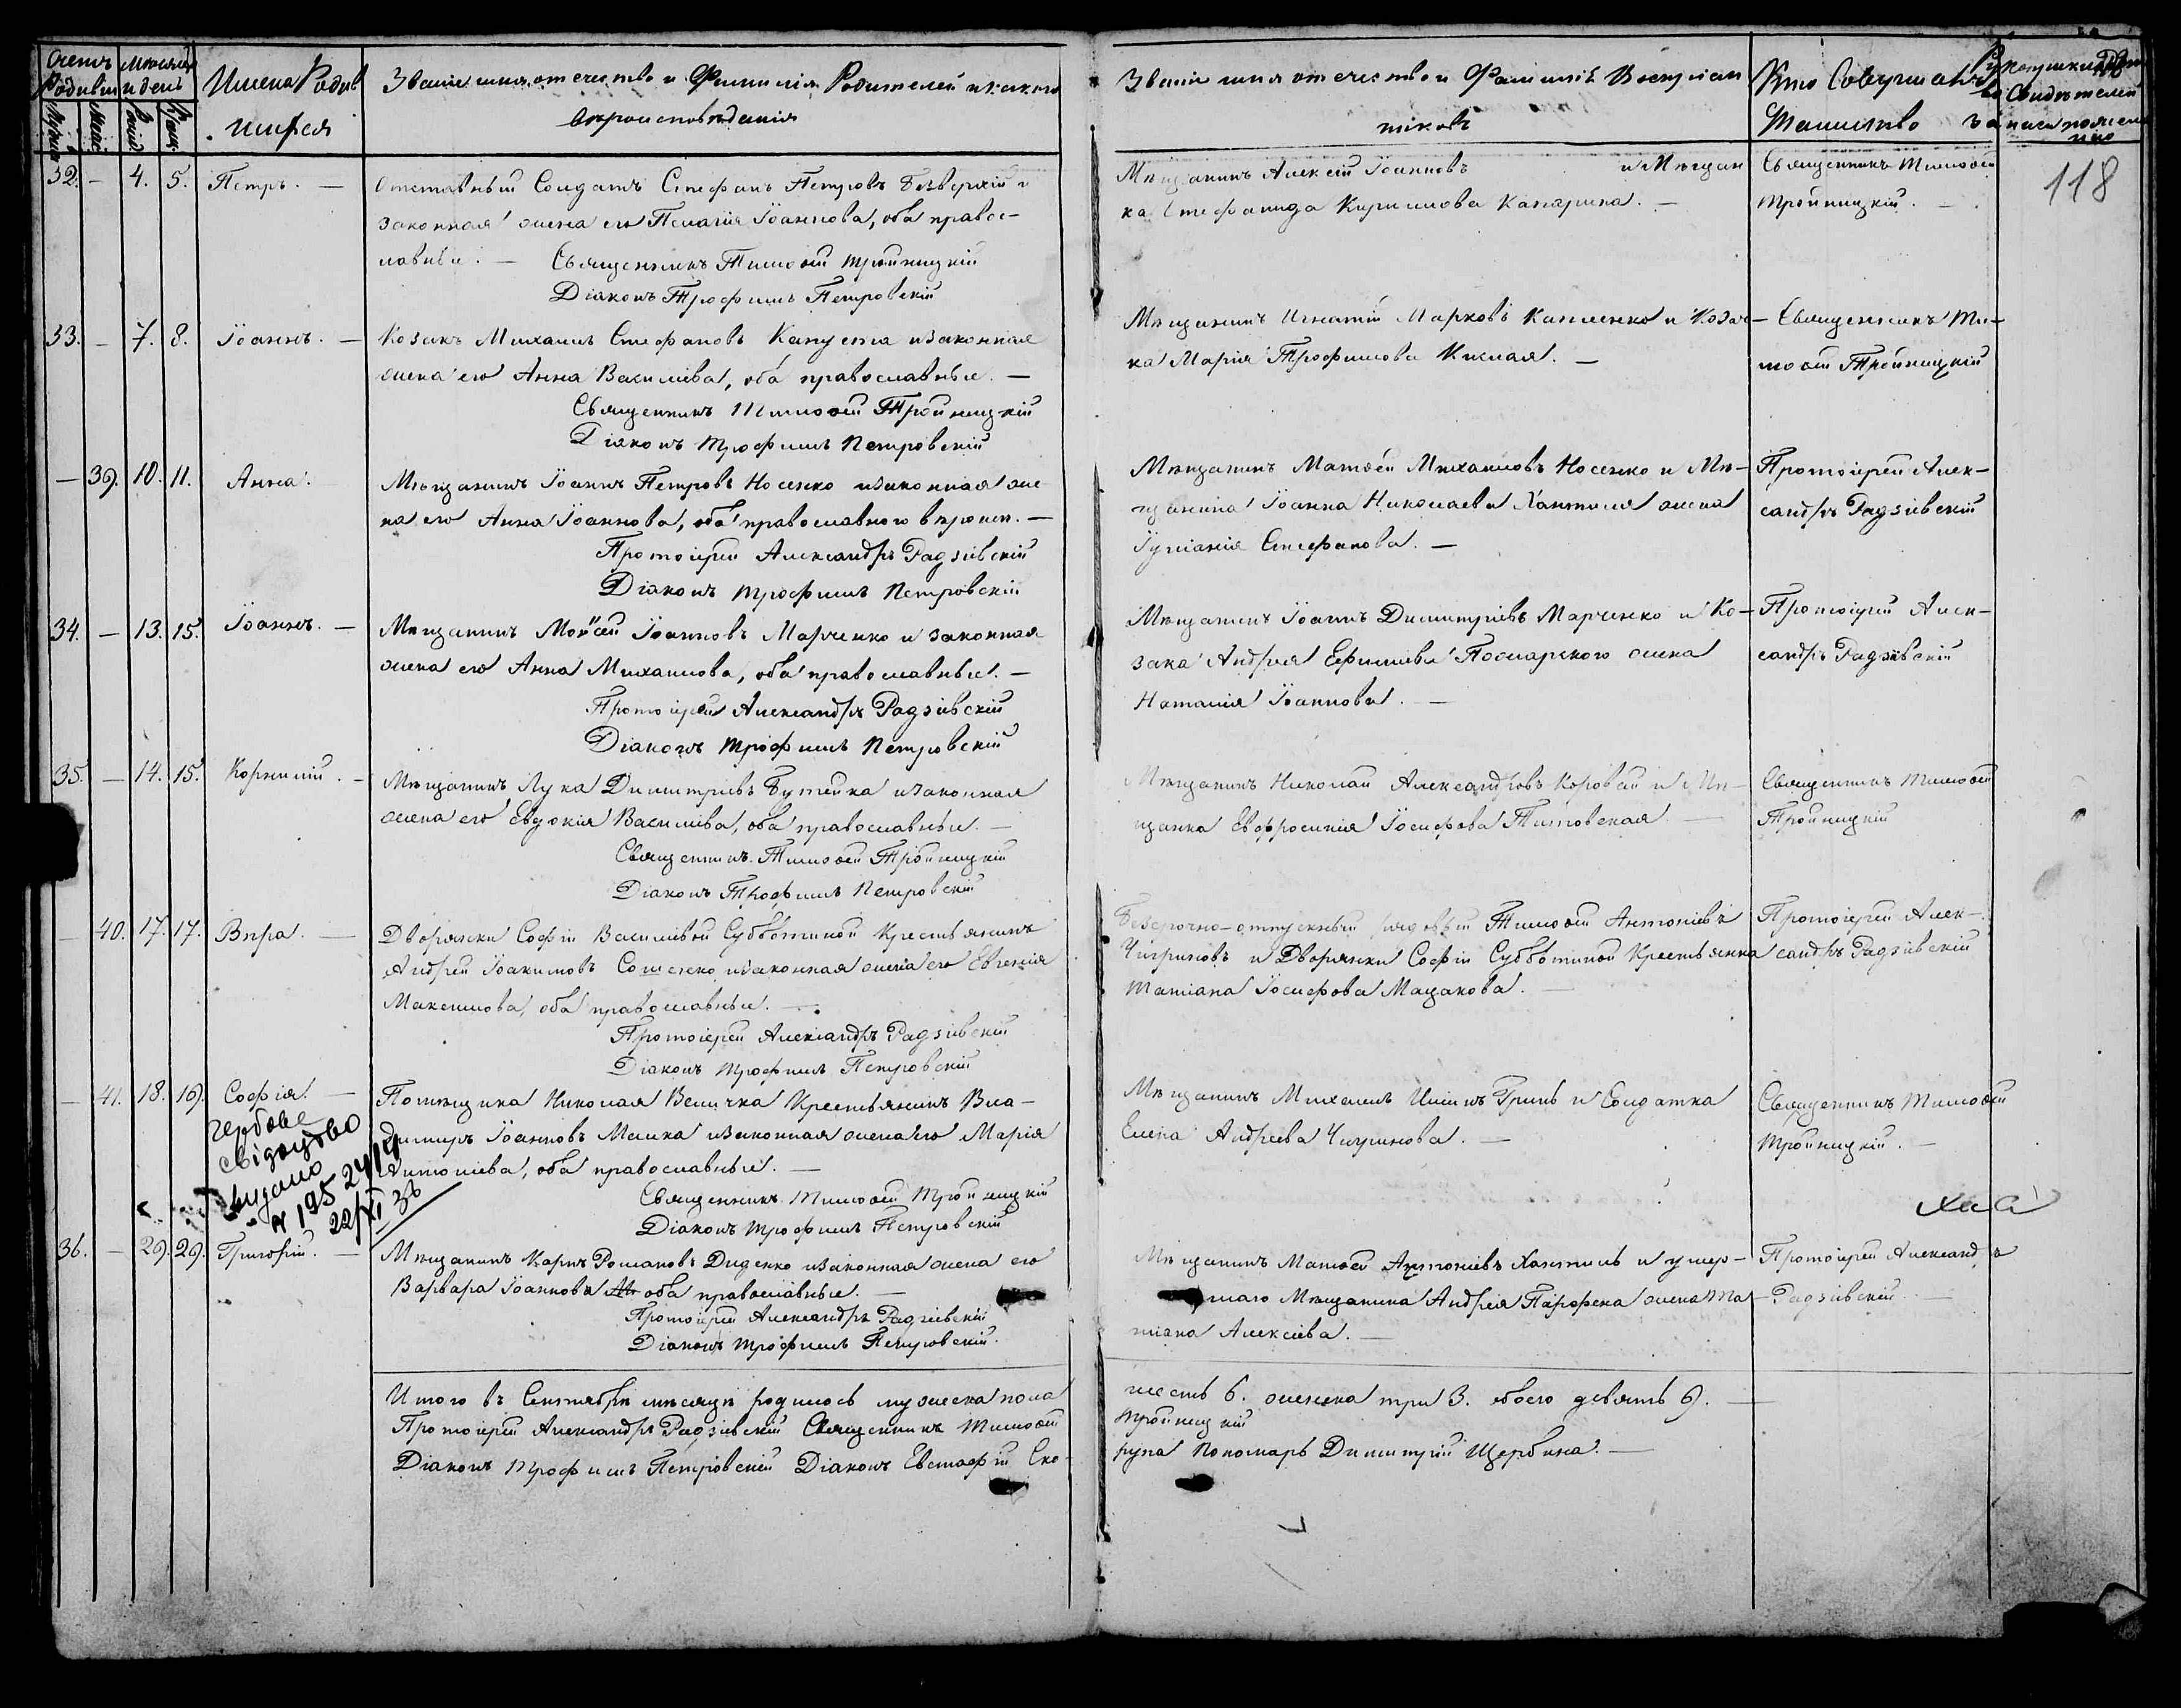 Счетъ Родивш. Мѣсяцъ и день Имена Родив
шихся
Званіе имя, отечество и Фамилія Родителей и какого
вѣроисповѣданія
Званіе имя отечество и Фамилія Воспріем
никовъ
Кто Совершалъ
Таинство
Рукоприкладство
Свидѣтелей
записи по желанію
118
32. – 4. 5. Петръ. –
Отставный Солдатъ Стефанъ Петровъ Безверхій и
законная жена его Пелагія Іоаннова, оба правос-
лавные. – Священникъ Тимоѳей Тройницкій
Діаконъ Трофимъ Петровскій
Мѣщанинъ Алексій Іоанновъ и Мѣщан
ка Стефанида Кирилова Капарина. –
Священникъ Тимоѳей
Тройницкій. –
33. – 7. 8. Іоаннъ. –
Козакъ Михаилъ Стефановъ Капуста и законная
жена его Анна Василіева, оба православные. –
Священникъ Тимоѳей Тройницкій
Діаконъ Трофимъ Петровскій
Мѣщанинъ Игнатій Марковъ Капленко и Козач-
ка Марія Трофимова Кислая. –
Священникъ Ти-
моѳей Тройницкій
– 39. 10. 11. Анна.
Мѣщанинъ Іоаннъ Петровъ Носенко и законная же
на его Анна Іоаннова, оба православного вѣроисп. –
Протоіерей Александръ Радзіевскій
Діаконъ Трофимъ Петровскій
Мѣщанинъ Матѳей Михаиловъ Носенко и Мѣ-
щанина Іоанна Николаева Хантиля жена
Іуліанія Стефанова. –
Протоіерей Алек-
сандръ Радзіевскій
34. – 13. 15. Іоаннъ. –
Мѣщанинъ Моѵсей Іоанновъ Марченко и законная
жена его Анна Михаилова, оба православные. –
Протоіерей Александръ Радзіевскій
Діаконъ Трофимъ Петровскій
Мѣщанинъ Іоаннъ Димитріевъ Марченко и Ко-
зака Андрея Ефиміева Посмарского жена
Наталія Іоаннова. –
Протоіерей Алек-
сандръ Радзіевскій
35. – 14. 15. Корнилій. –
Мѣщанинъ Лука Димитріевъ Бутейка и законная
жена его Евдокія Василіева, оба православные. –
Священникъ Тимоѳей Тройницкій
Діаконъ Трофимъ Петровскій
Мѣщанинъ Николай Александровъ Коровай и Мѣ-
щанка Евфросинія Іосифова Титовская. –
Священникъ Тимоѳей
Тройницкій
– 40. 17. 17. Вѣра. –
Дворянки Софіи Василіевой Субботиной Крестьянинъ
Андрей Іоакимовъ Сошенко и законная жена его Евгенія
Максимова, оба православные. –
Протоіерей Александръ Радзіевскій
Діаконъ Трофимъ Петровскій
Безсрочно-отпускный рядовый Тимоѳей Антоніевъ
Чигриновъ и Дворянки Софіи Субботиной Крестьянка
Татіана Іосифова Мацакова. –
Протоіерей Алек-
сандръ Радзіевскій
– 41. 18. 19. Софія. –
гербове
свідоцтво
видано
№ 195
22/XI 36
Помѣщика Николая Величка Крестьянинъ Вла-
димиръ Іоанновъ Малка и законная жена его Марія
Антоніева, оба православные. –
Священникъ Тимоѳей Тройницкій
Діаконъ Трофимъ Петровскій
Мѣщанинъ Михаилъ Гринь и Солдатка
Елена Андреева Чигринова. –
Священникъ Тимоѳей
Тройницкій. –
36. – 29. 29. Григорій. –
Мѣщанинъ Карпъ Романовъ Диденко и законная жена его
Варвара Іоаннова оба православные. –
Протоіерей Александръ Радзіевскій
Діаконъ Трофимъ Петровскій.
Мѣщанинъ Матѳей Антоніевъ Хантиль и умер-
шаго Мѣщанина Андрея Парфена жена Та-
тіана Алексіева. –
Протоіерей Александръ
Радзіевскій. –
Итого въ Сентябрѣ мѣсяцѣ родилось мужеска пола
шесть 6. женска три 3. обоего девять 9. –
Протоіерей Александръ Радзіевскій Священникъ Тимоѳей
Тройницкій
Діаконъ Трофимъ Петровскій Діаконъ Евстафій Ско-
рупа Пономарь Димитрій Щербина. –